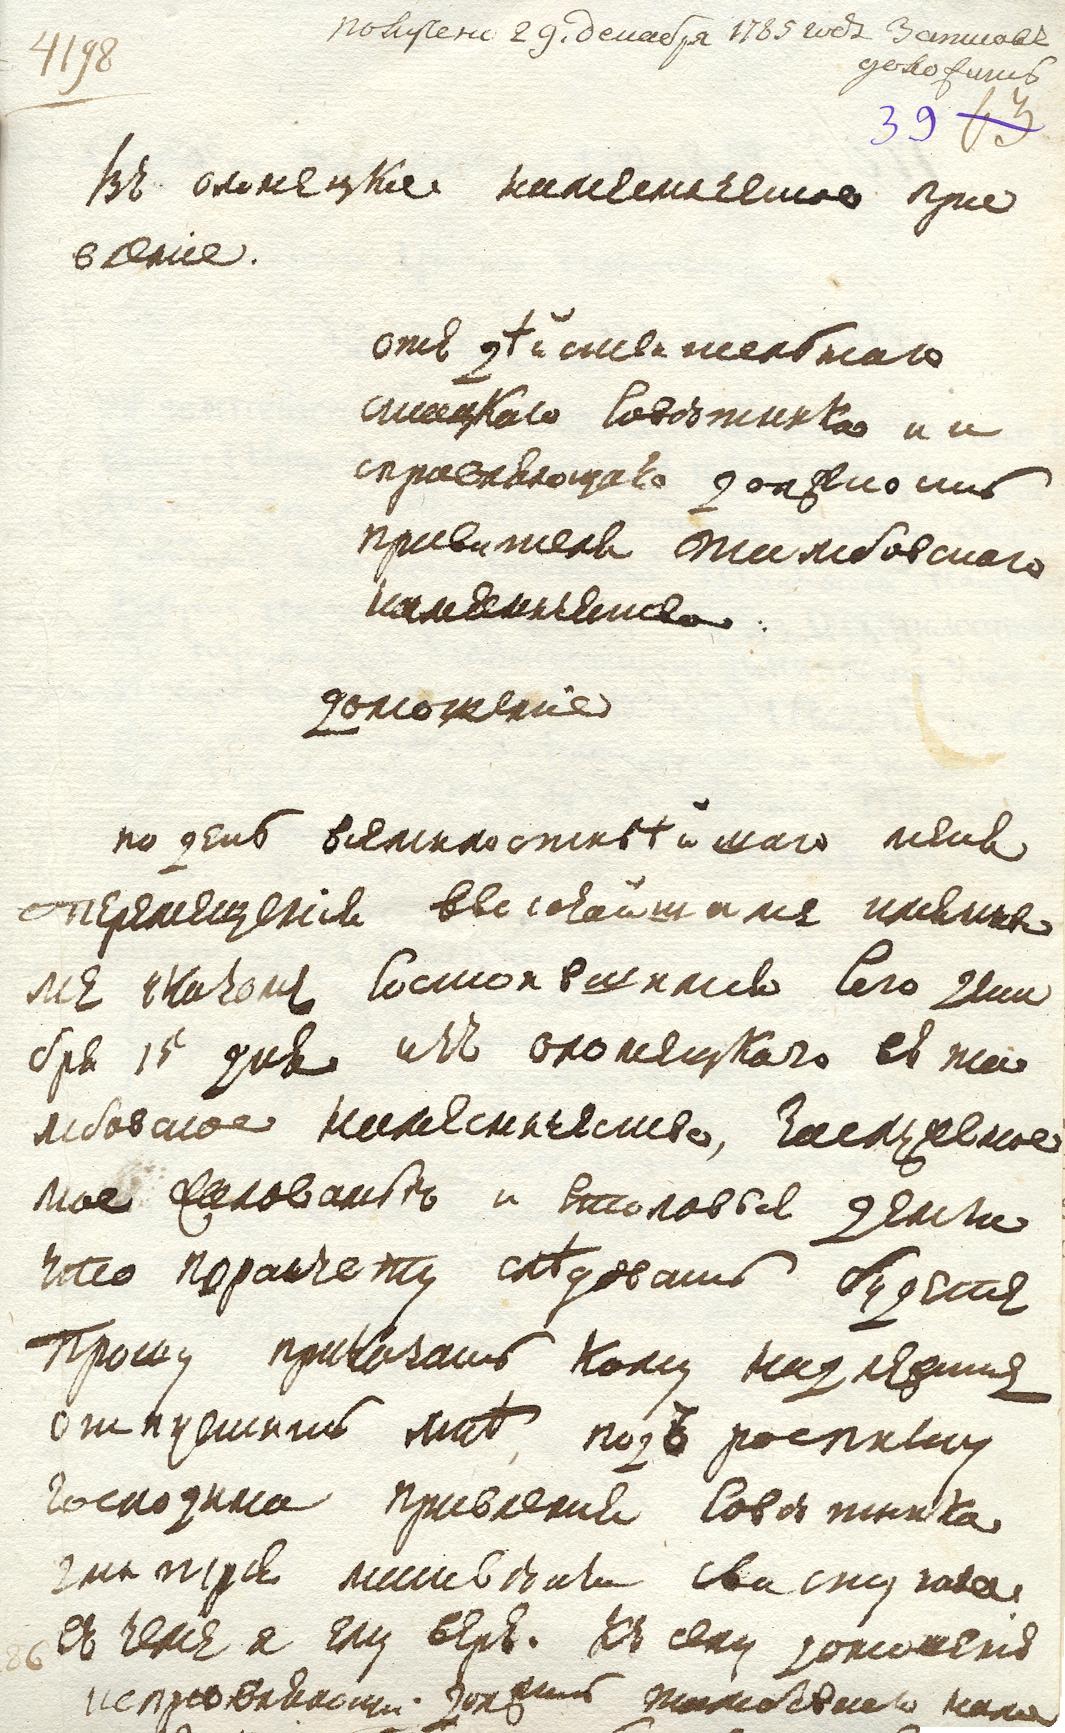 4198
получено 29. декабря 1785 года Записавъ
доложить
39 63
Въ олонецкое наместническое пра
вление.
отъ дѣйствительнаго
статскаго Советника и и
справляющаго должность
правителя Тамбовскаго
наместничества.
доношение
по день всемилостивѣйшаго меня
перемещения высочайшимъ имянны
мъ указомъ Состоявшимся Сего дека
бря 15 дня изъ олонецкаго въ та
мбовское наместничество, Заслуженное
мое жалованье и столовыя деньги
что по расчету слѣдовать будетъ
Прошу приказать Кому надлежитъ
отпустить мнѣ, подъ росписку
господина правления Советника
въ чемъ я ему верю. Къ сему доношению
исправляющий должность тамбовскаго наме
86